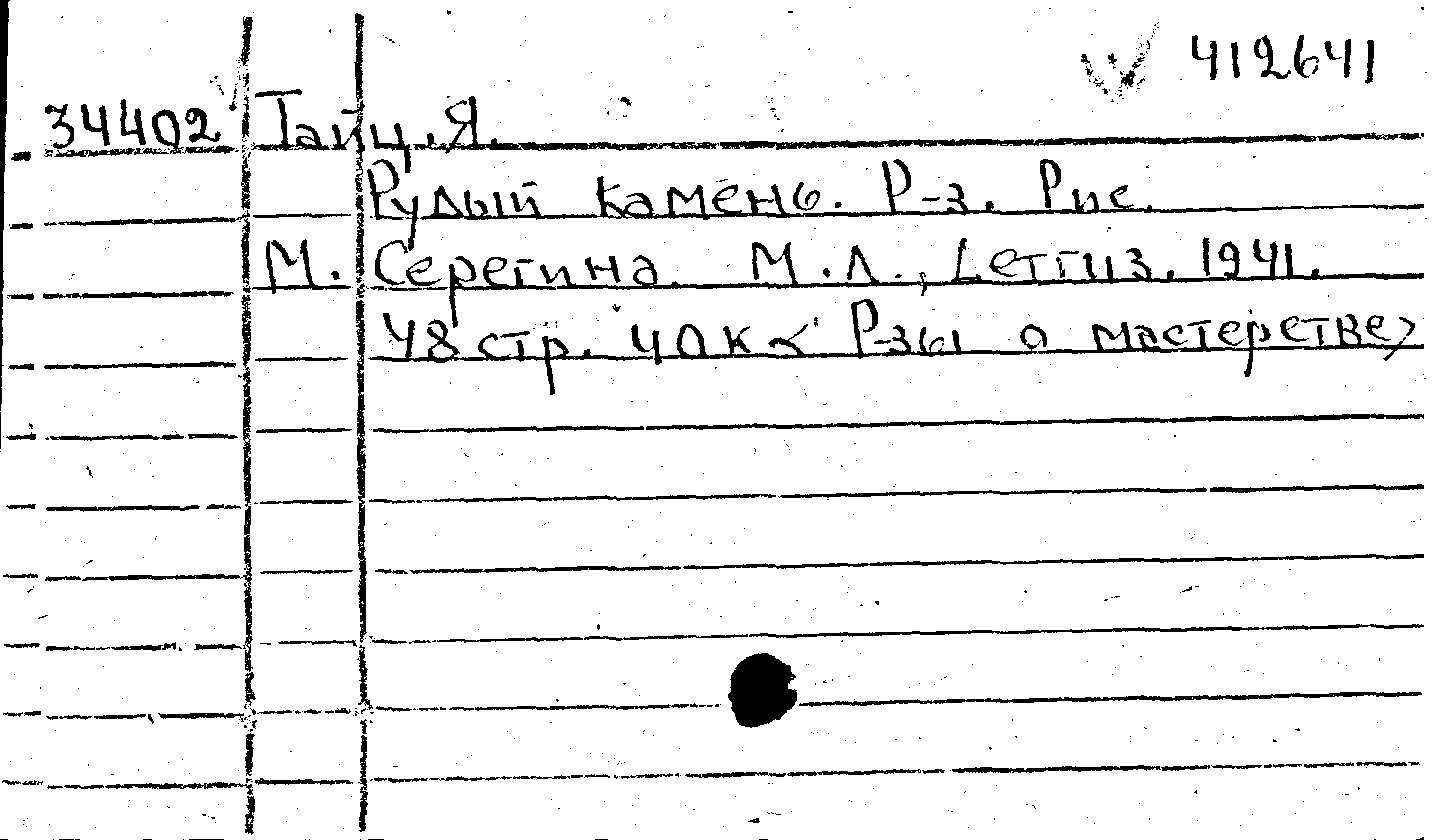 412641
34402 Тайц, Я.
Рудый камень. Р-з. Рис.
М. Серегина. М.Л., Детгиз. 1941.
48 стр. 40к < Р-зы о мастерстве>